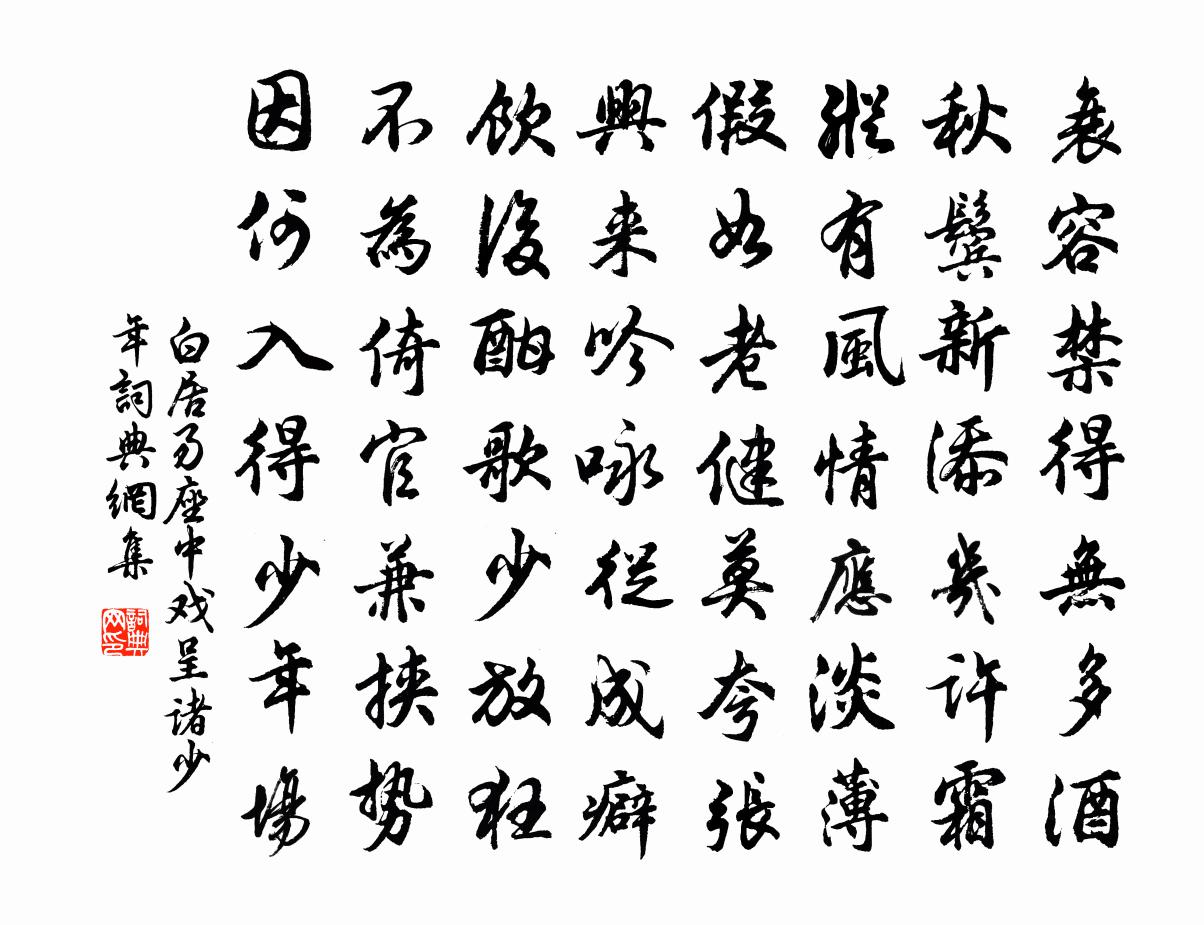 衰容禁得無多酒
秋鬢新添幾許霜
縱有風情應淡薄
假如老健莫夸張
興来吟咏從成癖
飲後酣歌少放狂
不為倚官兼挾势
因何入得少年場
白居易座中戏呈诸少
年詞典網集
詞典
网印